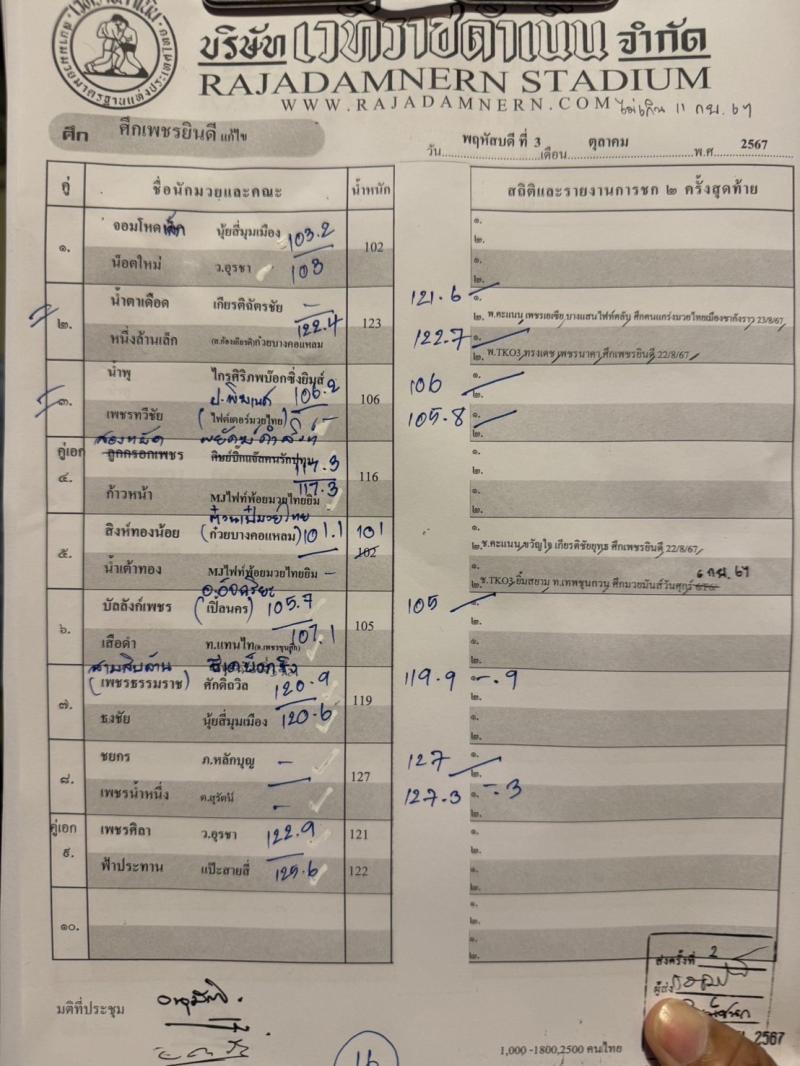 บริษัท เวทีราชดำเนิน จำกัด
RAJADAMNERN STADIUM
WWW.RAJADAMNERN.COM
11 กย. 67
ศึก ศึกเพชรยินดี แก้ไข
วัน พฤหัสบดี ที่ 3 เดือน ตุลาคม พ.ศ 2567
คู่ ชื่อนักมวยและคณะ น้ำหนัก สถิติและรายงานการชก ๒ ครั้งสุดท้าย
๑. จอมโหด นุ้ยสี่มุมเมือง 103.2 102 ๑. ๒.
น็อตใหม่ ว.อุรชา 103 ๑. ๒.
๒. น้ำตาเดือด เกียรติฉัตรชัย – 123 121.6 ๑.
๒. พ.คะแนน เพชรเอเซีย บางแสนไฟท์คลับ ศึกคนแกร่งมวยไทยเมืองชากังราว 23/8/67
หนึ่งล้านเล็ก (ส.ก้องเกียรติ)ก๋วยบางคอแหลม 122.4 122.7 ๑.
๒. พ.TKO3 ทรงเดช เพชรนาคา ศึกเพชรยินดี 22/8/67
๓. น้ำพุ ไกรศิริภพบ๊อกซิ่งยิมส์ 106.2 106 106 ๑. ๒.
เพชรทวีชัย (ไฟต์เตอร์มวยไทย) – 105.8 ๑. ๒.
คู่เอก สองหมัด
๔. ลูกกรอกเพชร ศิษย์บิ๊กแจ๊สคนรักปทุม 117.3 116 ๑. ๒.
ก้าวหน้า MJไฟท์พ้อยมวยไทยยิม 117.3 ๑. ๒.
๕. สิงห์ทองน้อย (ก๋วยบางคอแหลม) 101.1 101 102 ๑.
๒. ช.คะแนน ขวัญใจ เกียรติชัยยุทธ ศึกเพชรยินดี 22/8/67
น้ำเต้าทอง MJไฟท์พ้อยมวยไทยยิม – ๑. 6 กย. 67
๒. ช.TKO3 ยิ้มสยาม ท.เทพชุนกวน ศึกมวยมันส์วันศุกร์
๖. บัลลังก์เพชร (เปิลนคร) 105.7 105 105 ๑. ๒.
เสือดำ ท.แทนไท 107.1 ๑. ๒.
สามสิบล้าน
๗. (เพชรธรรมราช) ศักดิ์ถวิล 120.9 119 119.9 ๑. –.9 ๒.
ธงชัย นุ้ยสี่มุมเมือง 120.6 ๑. ๒.
๘. ชยกร ภ.หลักบุญ – 127 127 ๑. ๒.
เพชรน้ำหนึ่ง ต.สุรัตน์ – 127.3 ๑. –.3 ๒.
คู่เอก เพชรศิลา ว.อุรชา 122.9 121 ๑. ๒.
๙. ฟ้าประทาน แป๊ะสายสี่ 125.6 122 ๑. ๒.
๑๐. ๑. ๒. ๑. ๒.
มติที่ประชุม
ส่งครั้งที่ 2
ผู้ส่ง
2567
16
1,000 -1800,2500 คนไทย